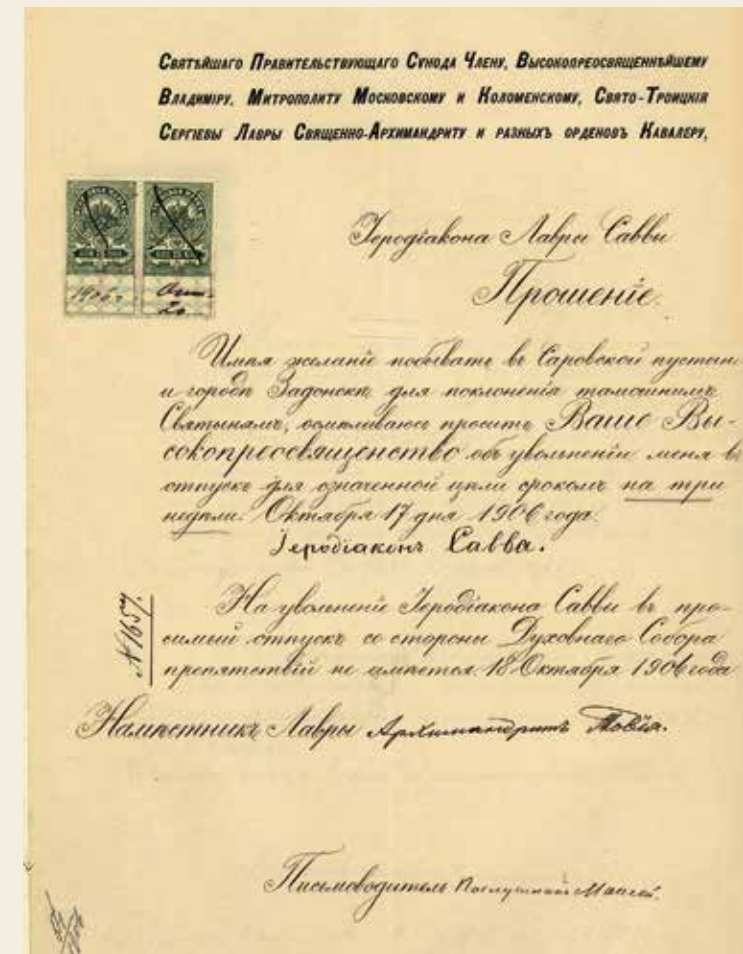 Святѣйшаго Правительствующаго Сѵнода Члену, Высокопреосвященнѣйшему
Владиміру, Митрополиту Московскому и Коломенскому, Свято-Троицкія
Сергіевы Лавры Священно-Архимандриту и разныхъ орденовъ Кавалеру,
Іеродіакона Лавры Саввы
Прошеніе.
1906 г. Окт.
20
Имѣя желаніе побывать въ Саровской пустыни
и городѣ Задонскѣ для поклоненія тамошнимъ
Святынямъ, осмѣливаюсь просить Ваше Вы-
сокопреосвященство объ увольненіи меня въ
отпускъ для означенной цѣли срокомъ на три
недѣли. Октября 17 дня 1906 года.
Іеродіаконъ Савва.
№ 1657.
На увольненіе Іеродіакона Саввы въ про-
симый отпускъ со стороны Духовнаго Собора
препятствій не имѣется. 18 Октября 1906 года
Намѣстникъ Лавры Архимандритъ Товія.
Письмоводитель Послушникъ